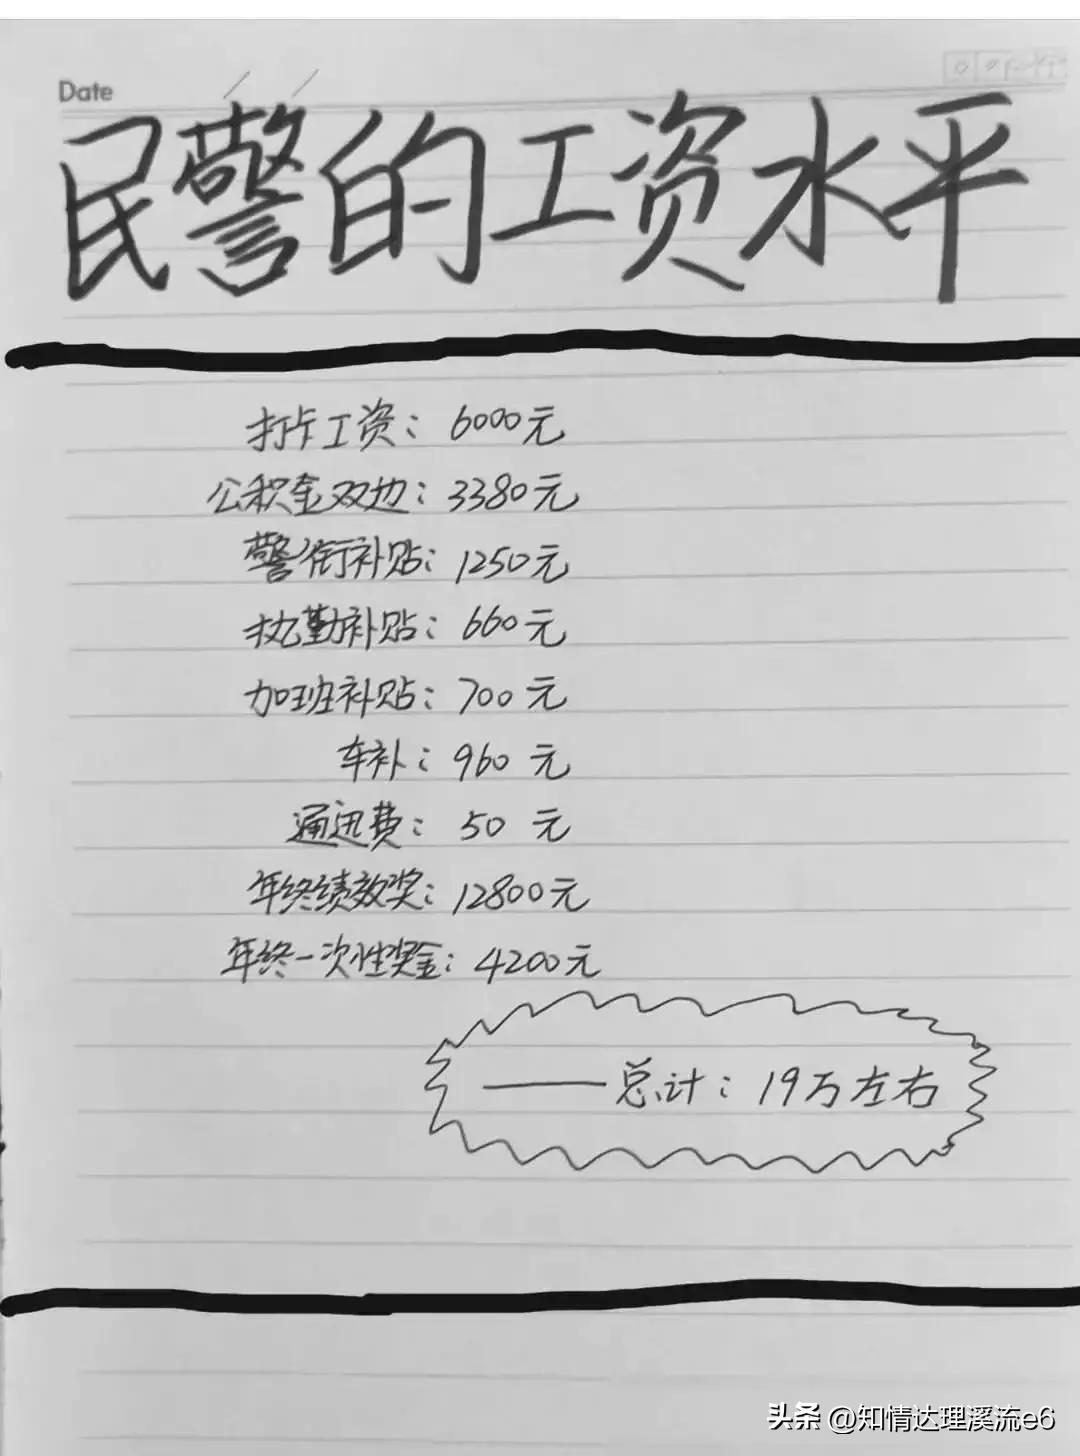 Date
民警的工资水平
打卡工资：6000元
公积金双边：3380元
警衔补贴：1250元
执勤补贴：660元
加班补贴：700元
车补：960元
通迅费：50元
年终绩效奖：12800元
年终一次性奖金：4200元
——总计：19万左右
头条 @知情达理溪流e6